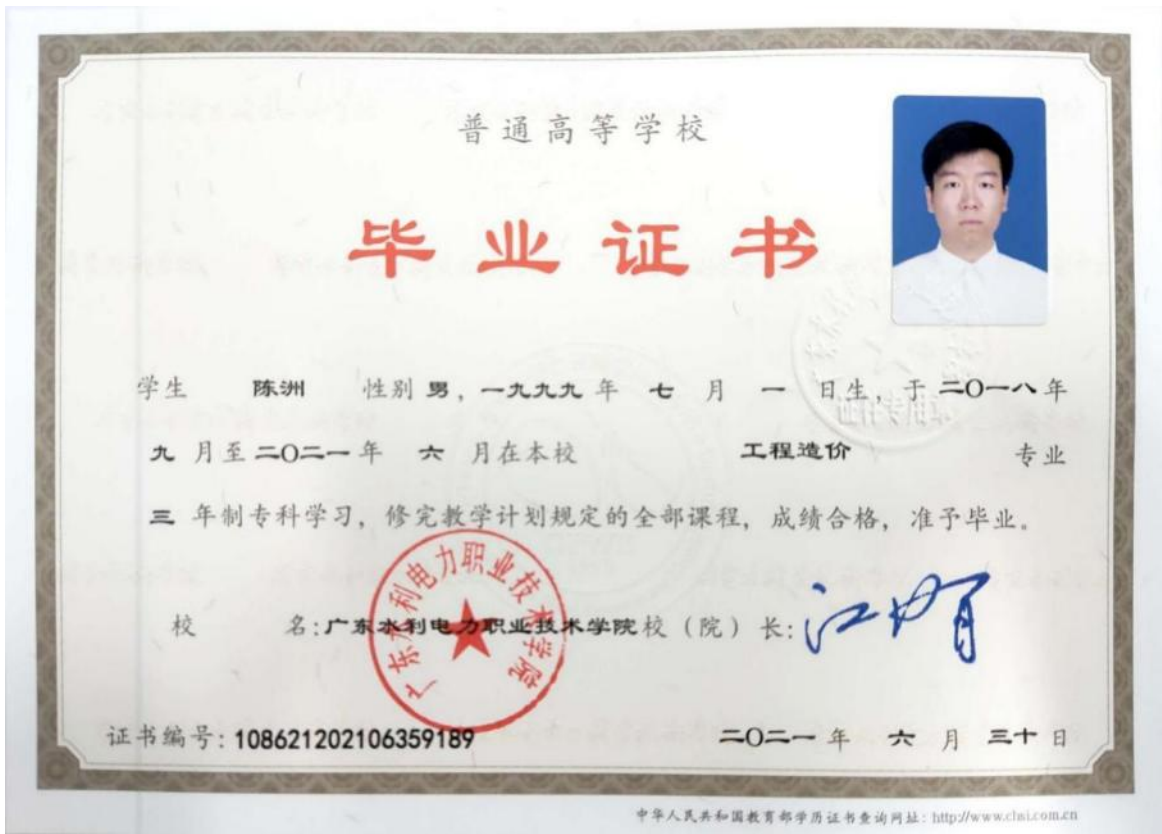 普通高等学校
毕业证书
学生 陈洲 性别 男，一九九九 年 七 月 一 日生，于 二〇一八 年
九 月至 二〇二一 年 六 月在本校 工程造价 专业
三 年制专科学习，修完教学计划规定的全部课程，成绩合格，准予毕业。
广东水利电力职业技术学院
校 名：广东水利电力职业技术学院 校（院）长：
证书编号：108621202106359189 二〇二一 年 六 月 三十 日
中华人民共和国教育部学历证书查询网址：http://www.chsi.com.cn